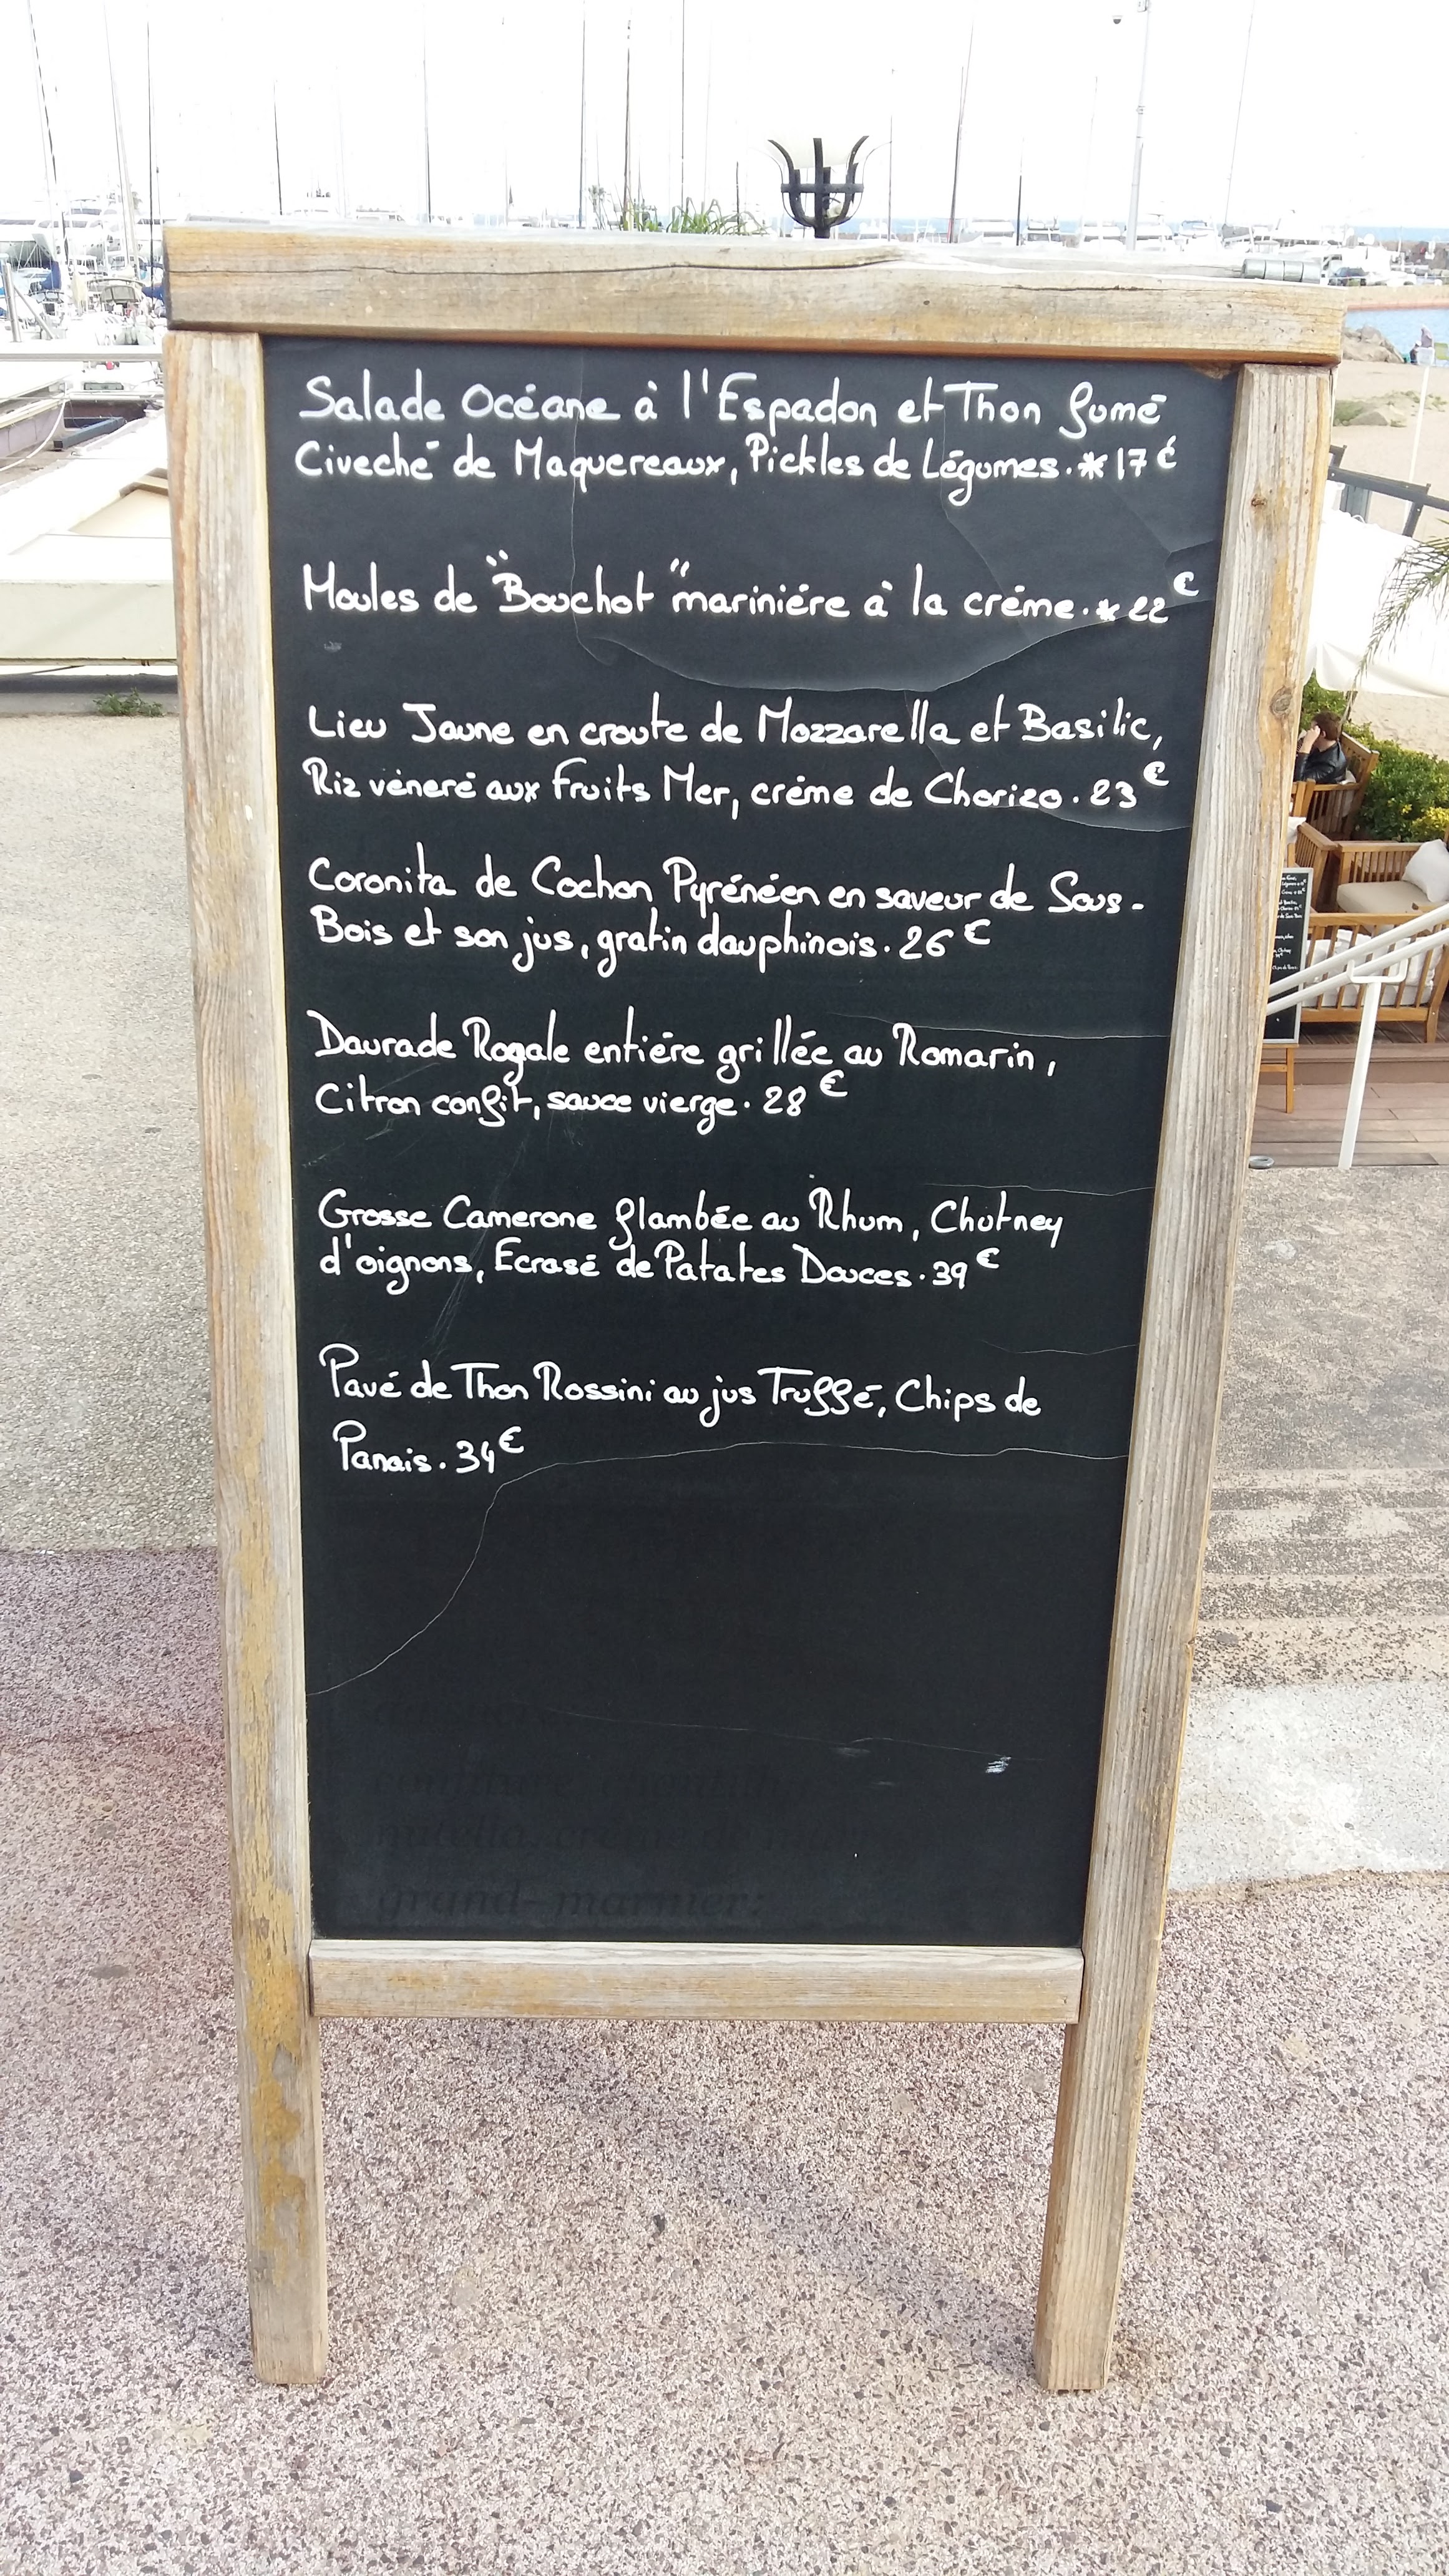 Salade Océane à l'Espadon et Thon fumé
Civeché de Maquereaux, Pickles de Légumes.*17€
Moules de "Bouchot" mariniére à la créme.*22€
Lieu Jaune en croute de Mozzarella et Basilic,
Riz véneré aux Fruits Mer, créme de Chorizo.23€
Coronita de Cochon Pyrénéen en saveur de Sous-
Bois et son jus, gratin dauphinois.26€
Daurade Royale entiére grillée au Romarin,
Citron confit, sauce vierge.28€
Grosse Camerone flambée au Rhum, Chutney
d'oignons, Ecrasé de Patates Douces.39€
Pavé de Thon Rossini au jus Truffé, Chips de
Panais.34€
grand-marnier: